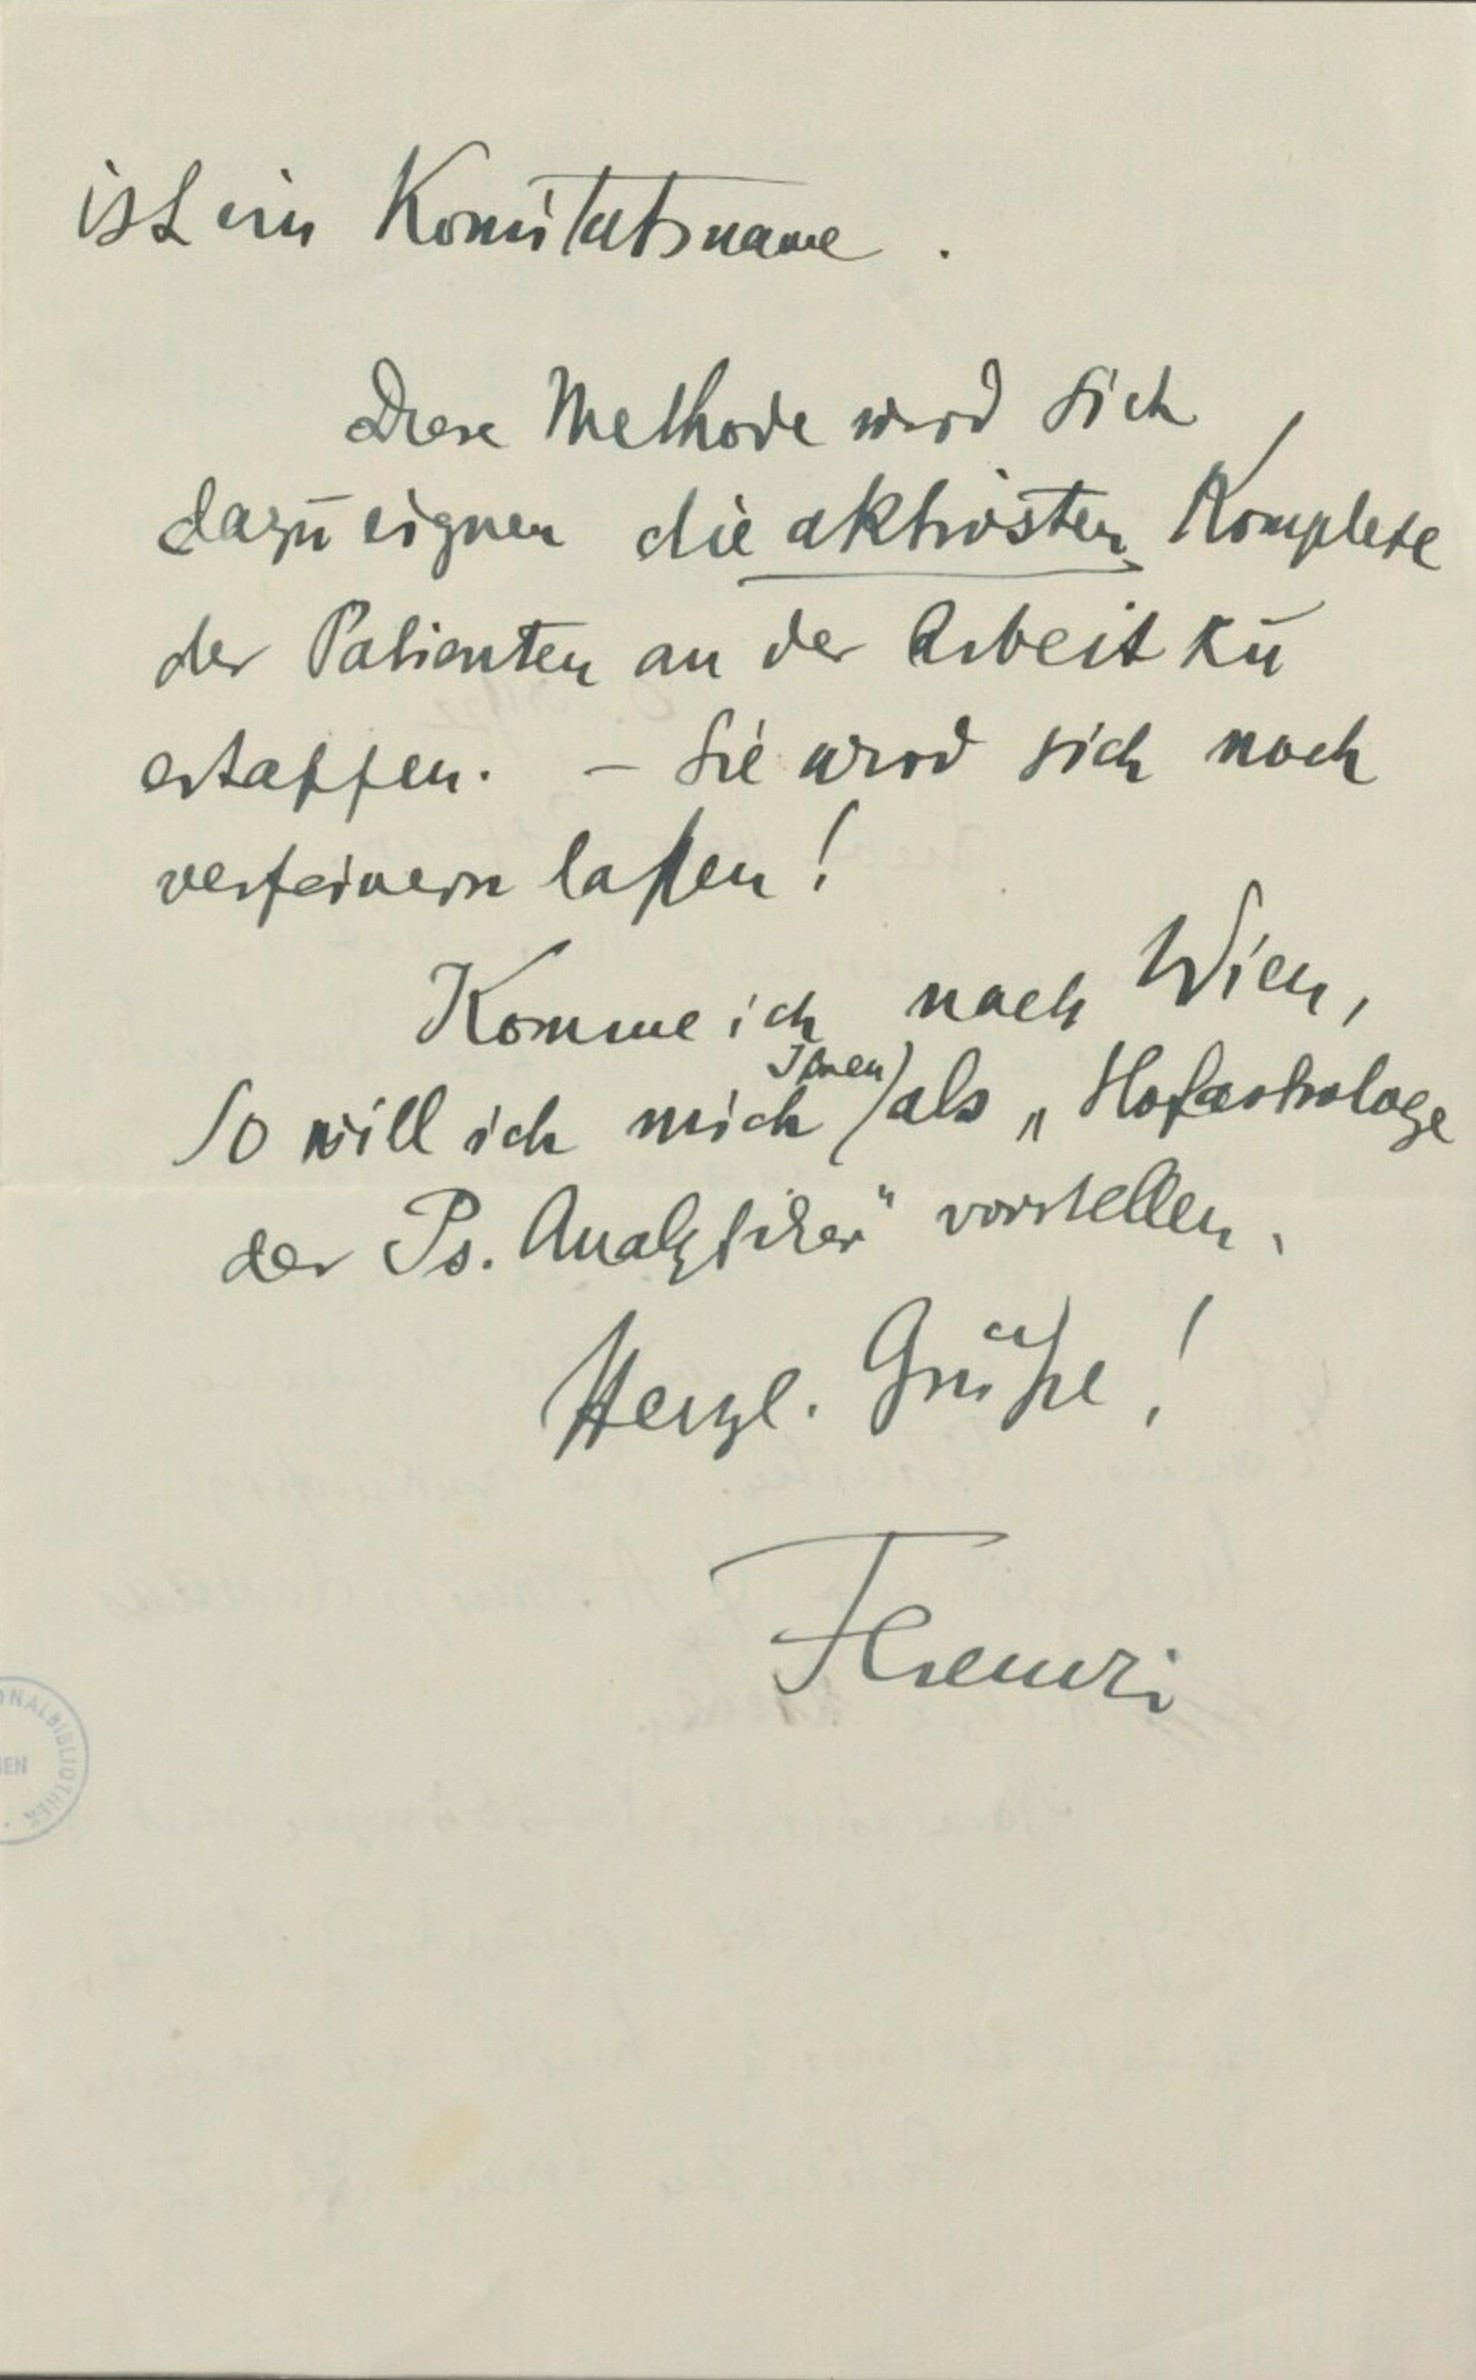 ist ein Komitatsname .
Diese Methode wird sich
dazu eignen die aktivsten Komplexe
der Patienten an der Arbeit zu
ertappen. – Sie wird sich noch
verfeinern laßen!
Komme ich nach Wien,
Ihnen
so will ich mich als „Hofastrologe
der Ps. Analytiker“ vorstellen.
Herzl. Grüße!
Ferenczi
ONALBIBLIOTHEK
IEN